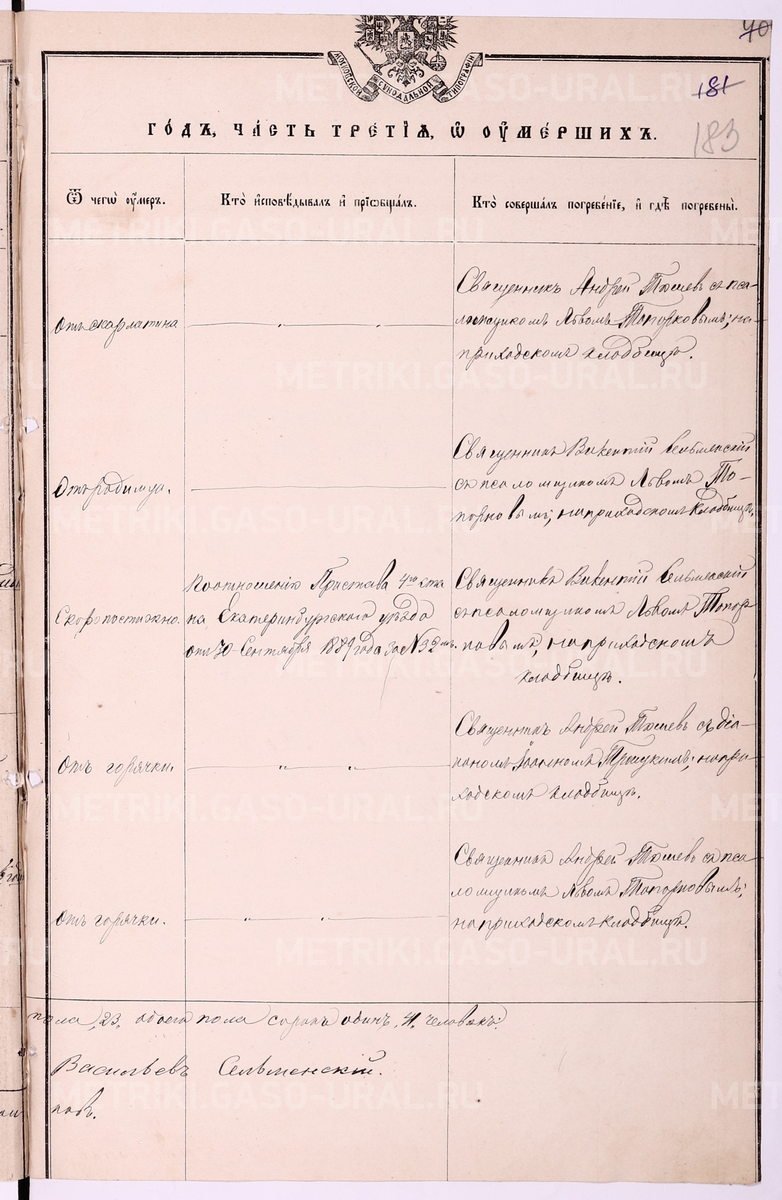 40
181
183
МОСКОВСКОЙ СѴНОДАЛЬНОЙ ТИПОГРАФІИ
ГОДЪ, ЧАСТЬ ТРЕТІѦ, Ѡ ОУМЕРШИХЪ.
Ѿ чегѡ оумеръ.
Кто исповѣдывалъ и пріобщалъ.
Кто совершалъ погребеніе, и гдѣ погребены.
Отъ скарлатина
Священникъ Андрей Тошевъ съ пса-
ломщикомъ Львомъ Топорковымъ; на
приходскомъ кладбищѣ.
Отъ родимца.
Священникъ Викентій Сельменскій
съ псаломщикомъ Львомъ То-
порковымъ; на приходскомъ кладбищѣ.
Скоропостижно.
По отношенію Пристава 4го ста
на Екатеринбургскаго уѣзда
отъ 30 Сентября 1889 года за №
Священникъ Викентій Сельменскій
съ псаломщикомъ Львомъ Топор
ковымъ, на приходскомъ
кладбищѣ.
Отъ горячки.
Священникъ Андрей Тошевъ съ діа-
кономъ Іоанномъ; на при-
ходскомъ кладбищѣ.
Отъ горячки.
Священникъ Андрей Тошевъ съ пса
ломщикомъ Львомъ Топорковымъ;
на приходскомъ кладбищѣ.
пола, 23, обоего пола сорокъ одинъ, 41, человѣкъ.
Васильевъ Сельменскій.
ковъ.
METRIKI.GASO-URAL.RU